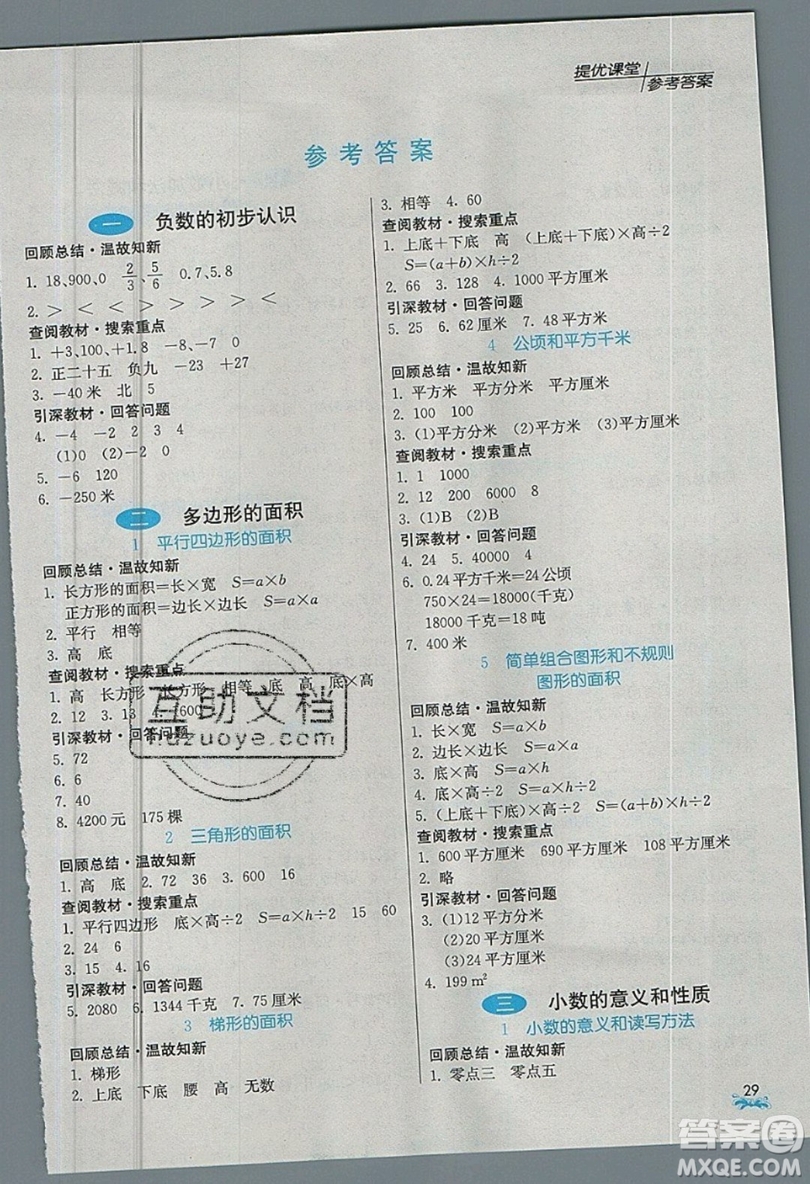 提优课堂
参考答案
参考答案
一 负数的初步认识
回顾总结·温故知新
1. 18,900,0 2/3,5/6 0.7,5.8
2. > < < > > > > <
查阅教材·搜索重点
1. +3,100,+1.8 -8,-7 0
2. 正二十五 负九 -23 +27
3. -40米 北 5
引深教材·回答问题
4. -4 -2 2 3 4
(1)0 (2)-2 0
5. -6 120
6. -250米
二 多边形的面积
1 平行四边形的面积
回顾总结·温故知新
1. 长方形的面积=长×宽 S=a×b
正方形的面积=边长×边长 S=a×a
2. 平行 相等
3. 高 底
查阅教材·搜索重点
1. 高 长方形 长方形 相等 底 高 底×高
2. 12 3. 13 4. 7600
引深教材·回答问题
5. 72
6. 6
7. 40
8. 4200元 175棵
2 三角形的面积
回顾总结·温故知新
1. 高 底 2. 72 36 3. 600 16
查阅教材·搜索重点
1. 平行四边形 底×高÷2 S=a×h÷2 15 60
2. 24 6
3. 15 4. 16
引深教材·回答问题
5. 2080 6. 1344千克 7. 75厘米
3 梯形的面积
回顾总结·温故知新
1. 梯形
2. 上底 下底 腰 高 无数
3. 相等 4. 60
查阅教材·搜索重点
1. 上底+下底 高 (上底+下底)×高÷2
S=(a+b)×h÷2
2. 66 3. 128 4. 1000平方厘米
引深教材·回答问题
5. 25 6. 62厘米 7. 48平方米
4 公顷和平方千米
回顾总结·温故知新
1. 平方米 平方分米 平方厘米
2. 100 100
3. (1)平方分米 (2)平方米 (3)平方厘米
查阅教材·搜索重点
1. 1 1000
2. 12 200 6000 8
3. (1)B (2)B
引深教材·回答问题
4. 24 5. 40000 4
6. 0.24平方千米=24公顷
750×24=18000(千克)
18000千克=18吨
7. 400米
5 简单组合图形和不规则
图形的面积
回顾总结·温故知新
1. 长×宽 S=a×b
2. 边长×边长 S=a×a
3. 底×高 S=a×h
4. 底×高÷2 S=a×h÷2
5. (上底+下底)×高÷2 S=(a+b)×h÷2
查阅教材·搜索重点
1. 600平方厘米 690平方厘米 108平方厘米
2. 略
引深教材·回答问题
3. (1)12平方分米
(2)20平方厘米
(3)24平方厘米
4. 199 m²
三 小数的意义和性质
1 小数的意义和读写方法
回顾总结·温故知新
1. 零点三 零点五
29
互助文档
h.uzuoye.com
答案圈
MXQE.COM